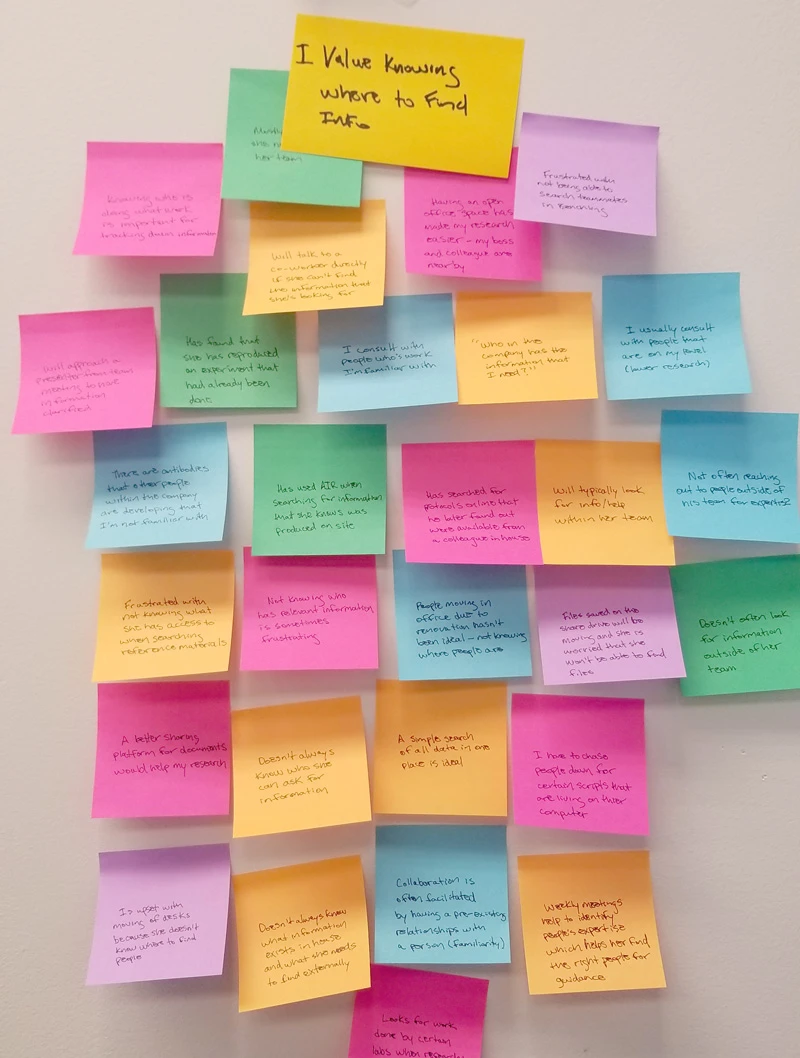 I Value Knowing
where to Find
Info
her team
Frustrated with
not being able to
search teammates
in benchling
Knowing who is
doing what work
is important for
tracking down information
Having an open
office space has
made my research
easier - my boss
and colleague are
nearby
Will talk to a
co-worker directly
if she can't find
the information that
she's looking for
Will approach a
presenter from team
meeting to have
information
clarified
Has found that
she has reproduced
an experiment that
had already been
done
I consult with
people who's work
I'm familiar with
"Who in the
company has the
information that
I need?"
I usually consult
with people that
are on my level
(lower research)
There are antibodies
that other people
within the company
are developing that
I'm not familiar with
Has used AIR when
searching for information
that she knows was
produced on site
Has searched for
protocols online that
he later found out
were available from
a colleague in house
Will typically look
for info/help
within her team
Not often reaching
out to people outside of
his team for expertise
Frustrated with
not knowing what
she has access to
when searching
reference materials
Not knowing who
has relevant information
is sometimes
frustrating
People moving in
office due to
renovation hasn't
been ideal - not knowing
where people are
Files saved on the
share drive will be
moving and she is
worried that she
won't be able to find
files
Doesn't often look
for information
outside of her
team
A better sharing
platform for documents
would help my research
Doesn't always
know who she
can ask for
information
A simple search
of all data in one
place is ideal
I have to chase
people down for
certain scripts that
are living on their
computer
Is upset with
moving of desks
because she doesn't
know where to find
people
Doesn't always know
what information
exists in house
and what she needs
to find externally
Collaboration is
often facilitated
by having a pre-existing
relationships with
a person (familiarity)
Weekly meetings
help to identify
people's expertise
which helps her find
the right people for
guidance
Looks for work
done by certain
labs when